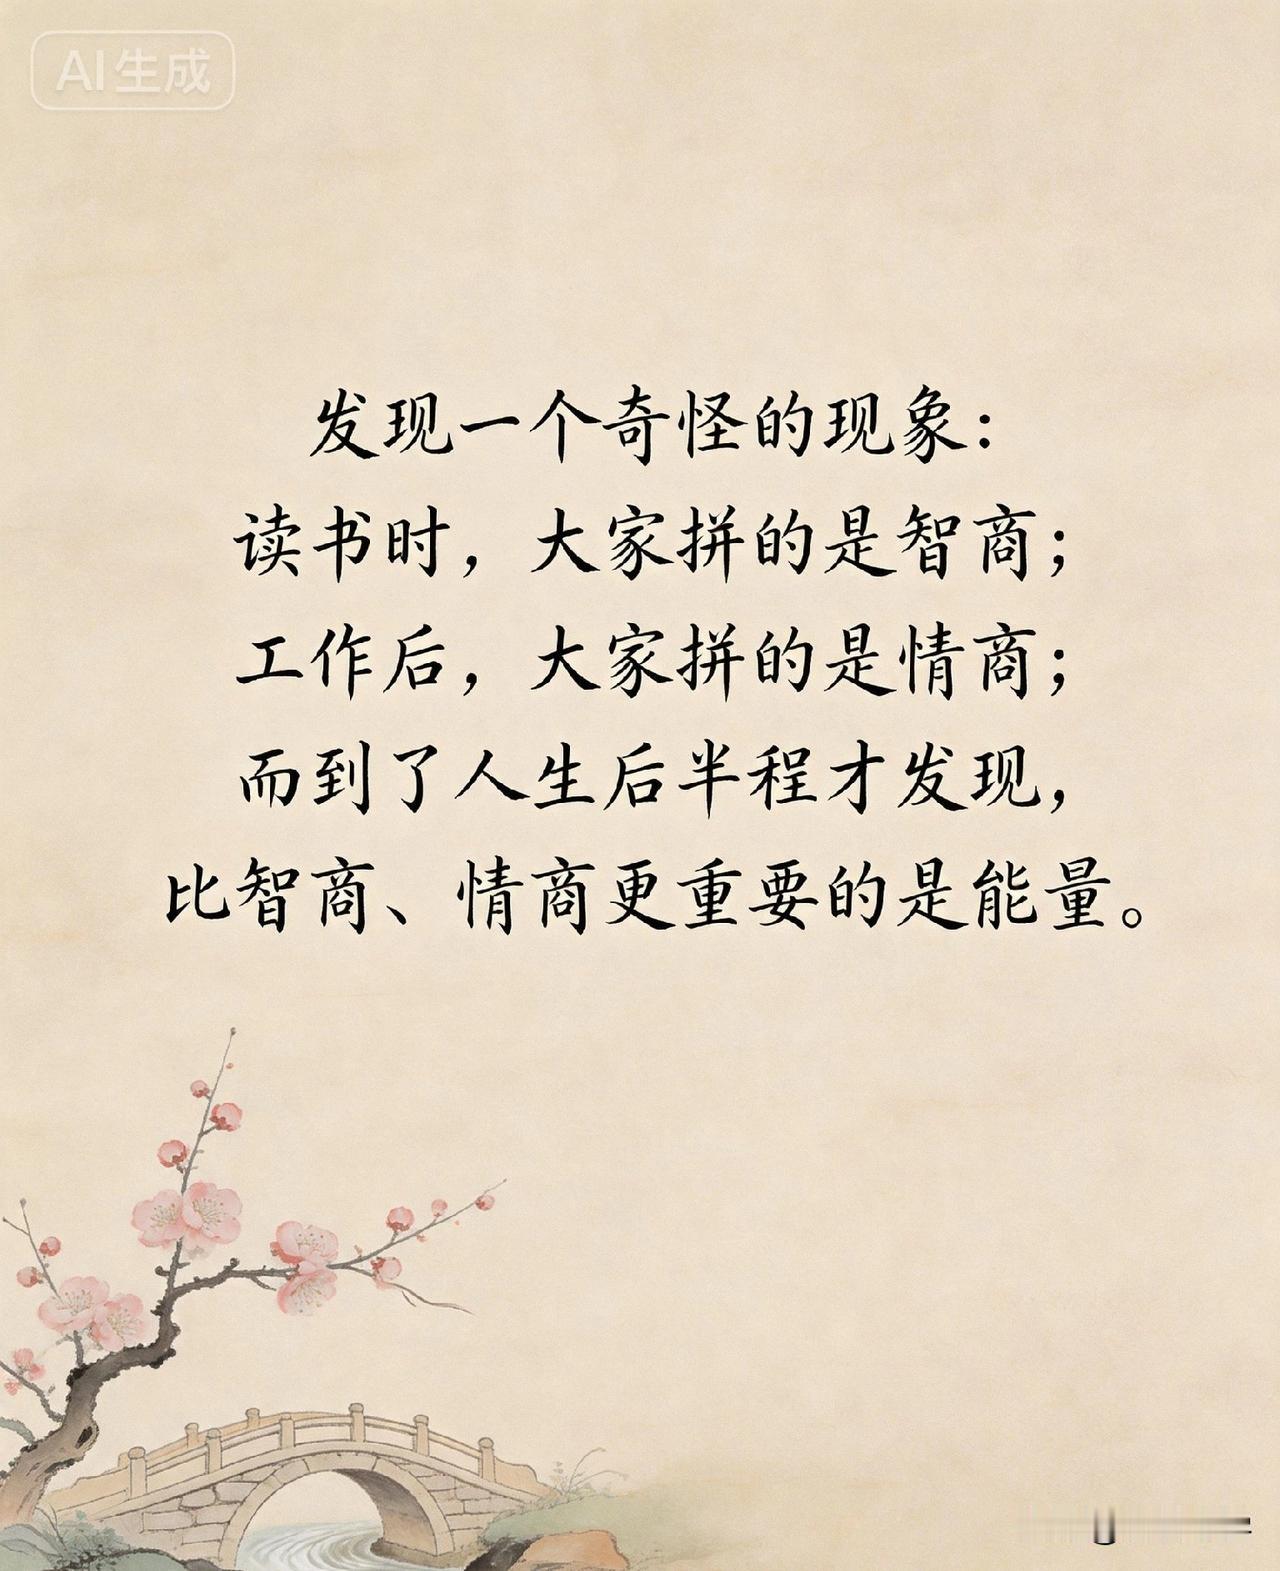 AI生成
发现一个奇怪的现象：
读书时，大家拼的是智商；
工作后，大家拼的是情商；
而到了人生后半程才发现，
比智商、情商更重要的是能量。